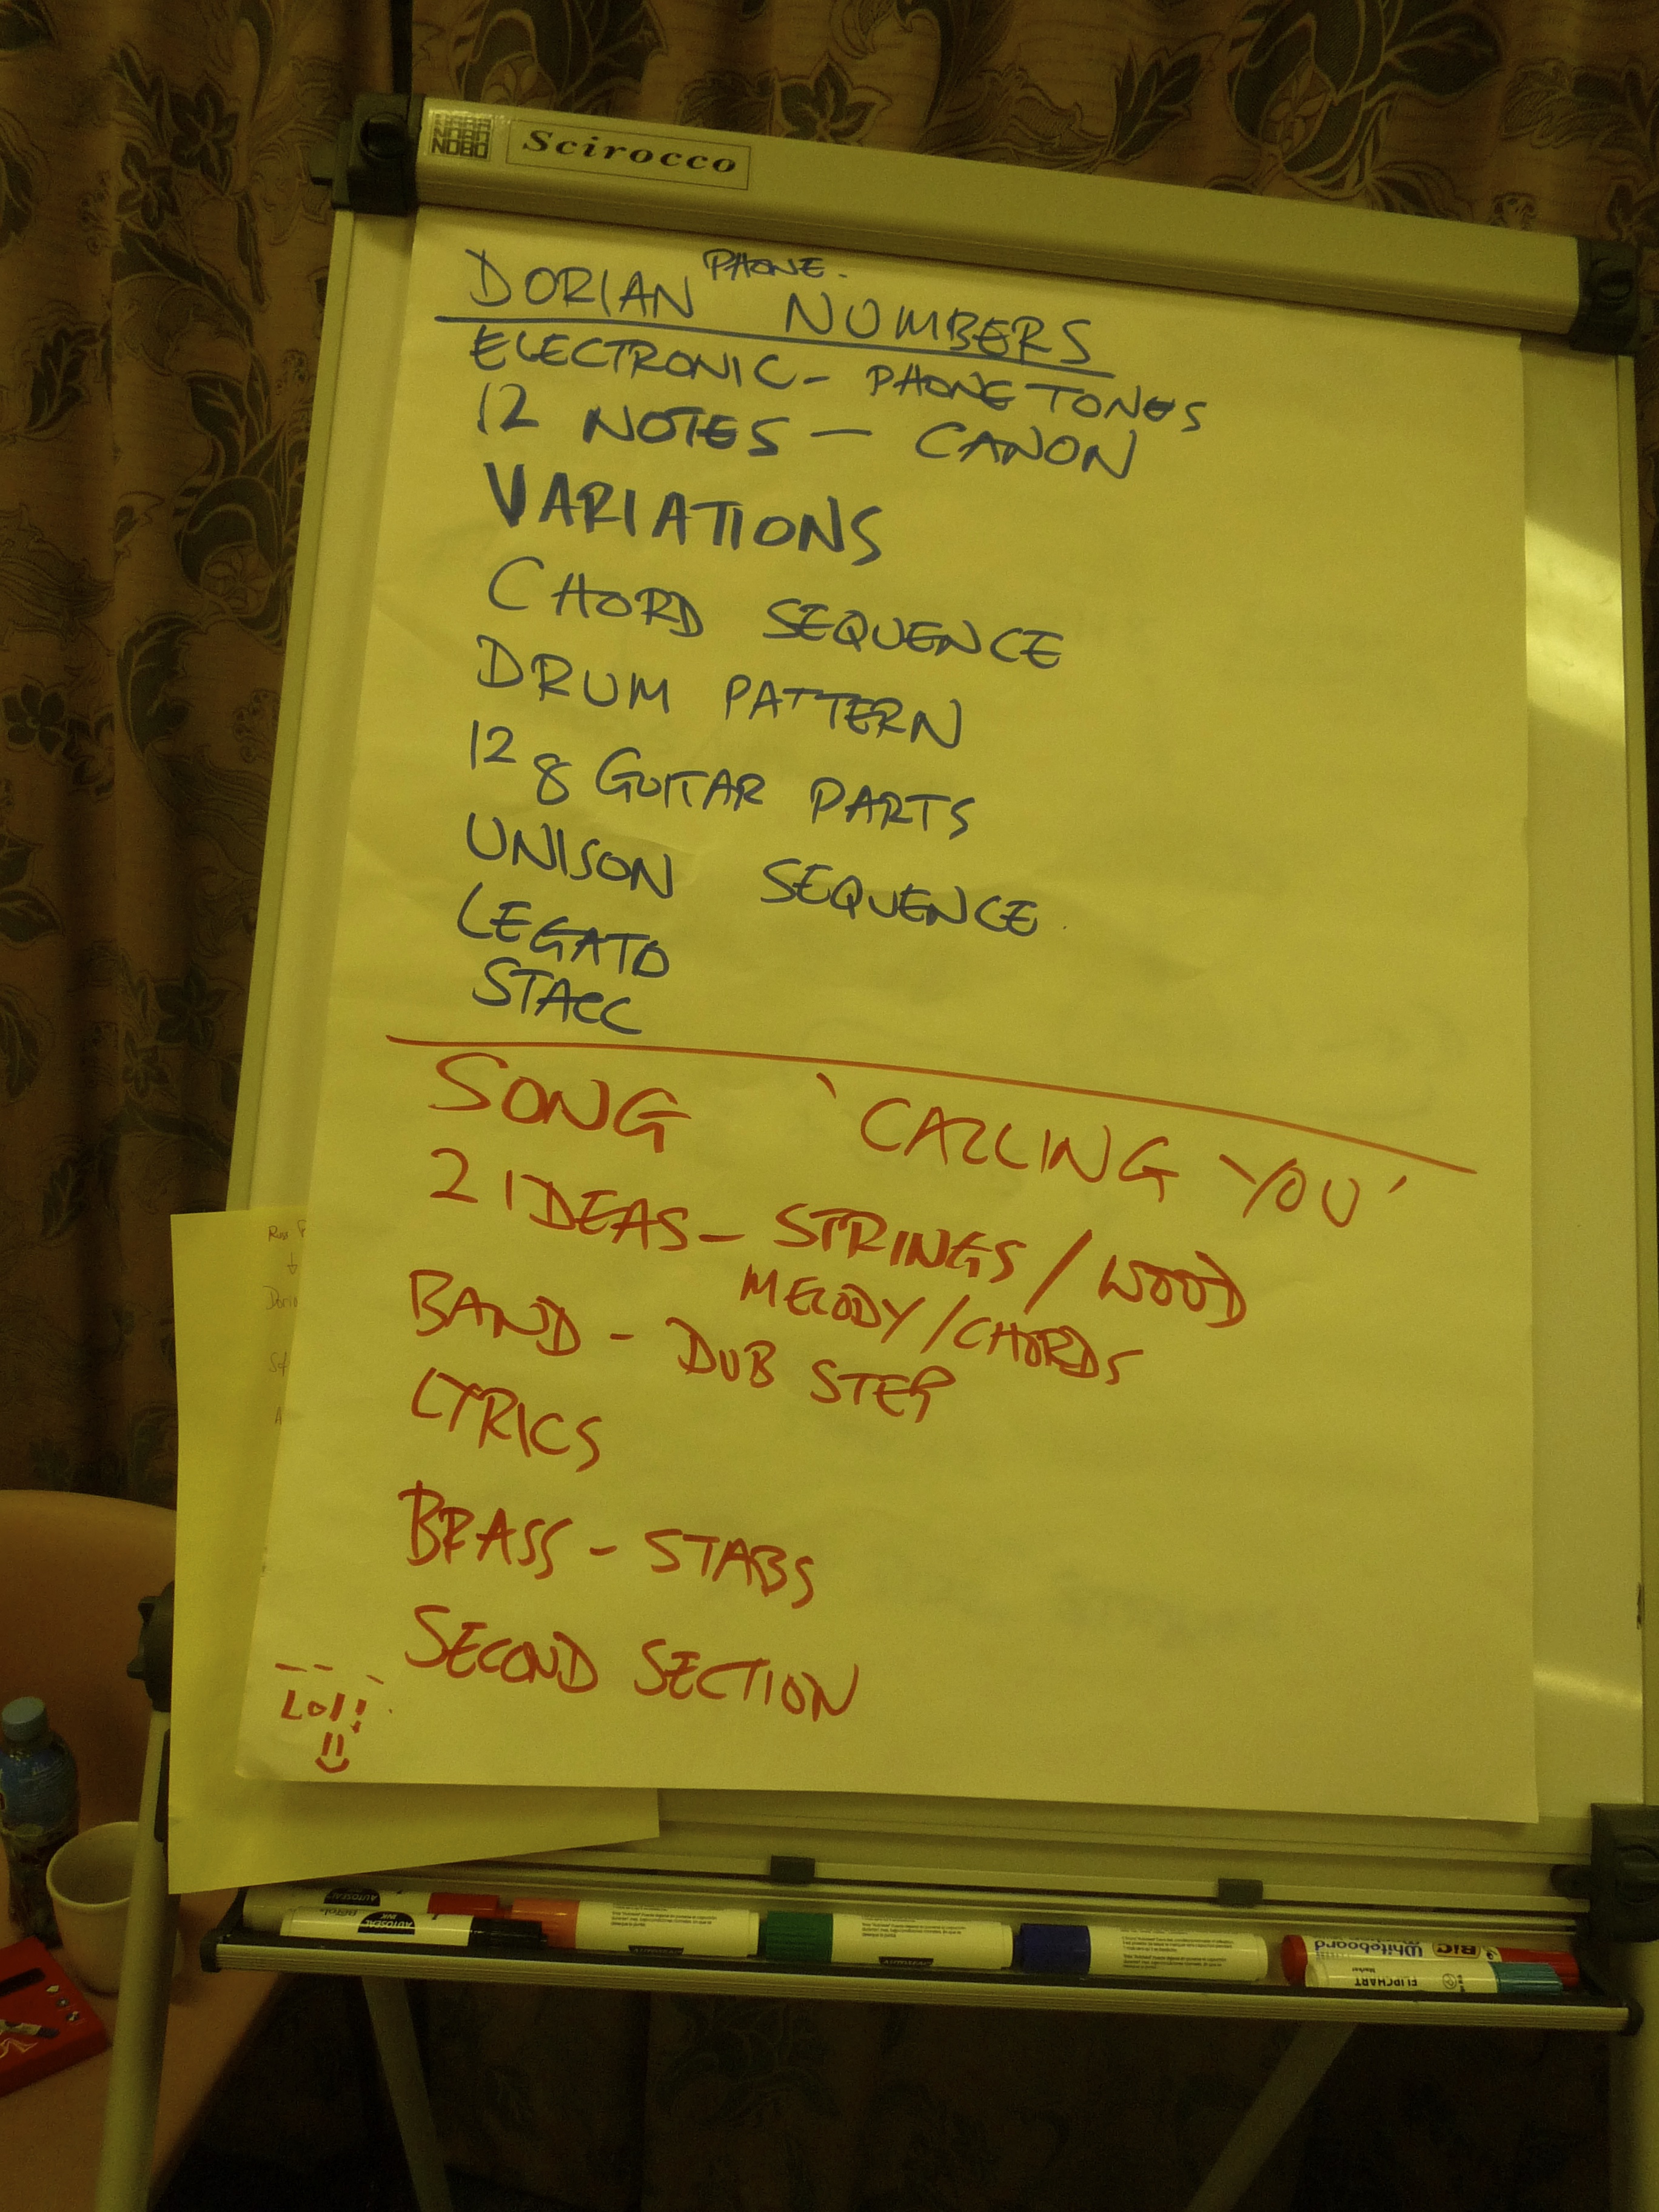 NOBO
Scirocco
PHONE.
DORIAN NUMBERS
ELECTRONIC - PHONE TONES
12 NOTES - CANON
VARIATIONS
CHORD SEQUENCE
DRUM PATTERN
12 8 GUITAR PARTS
UNISON SEQUENCE
LEGATO
STACC
SONG 'CALLING YOU'
2 IDEAS - STRINGS / WOOD
MELODY / CHORDS
BAND - DUB STEP
LYRICS
BRASS - STABS
SECOND SECTION
Lol!
AUTOSEAL
INK
AUTOSEAL
INK
BIC
Whiteboard
Marker
FLIPCHART